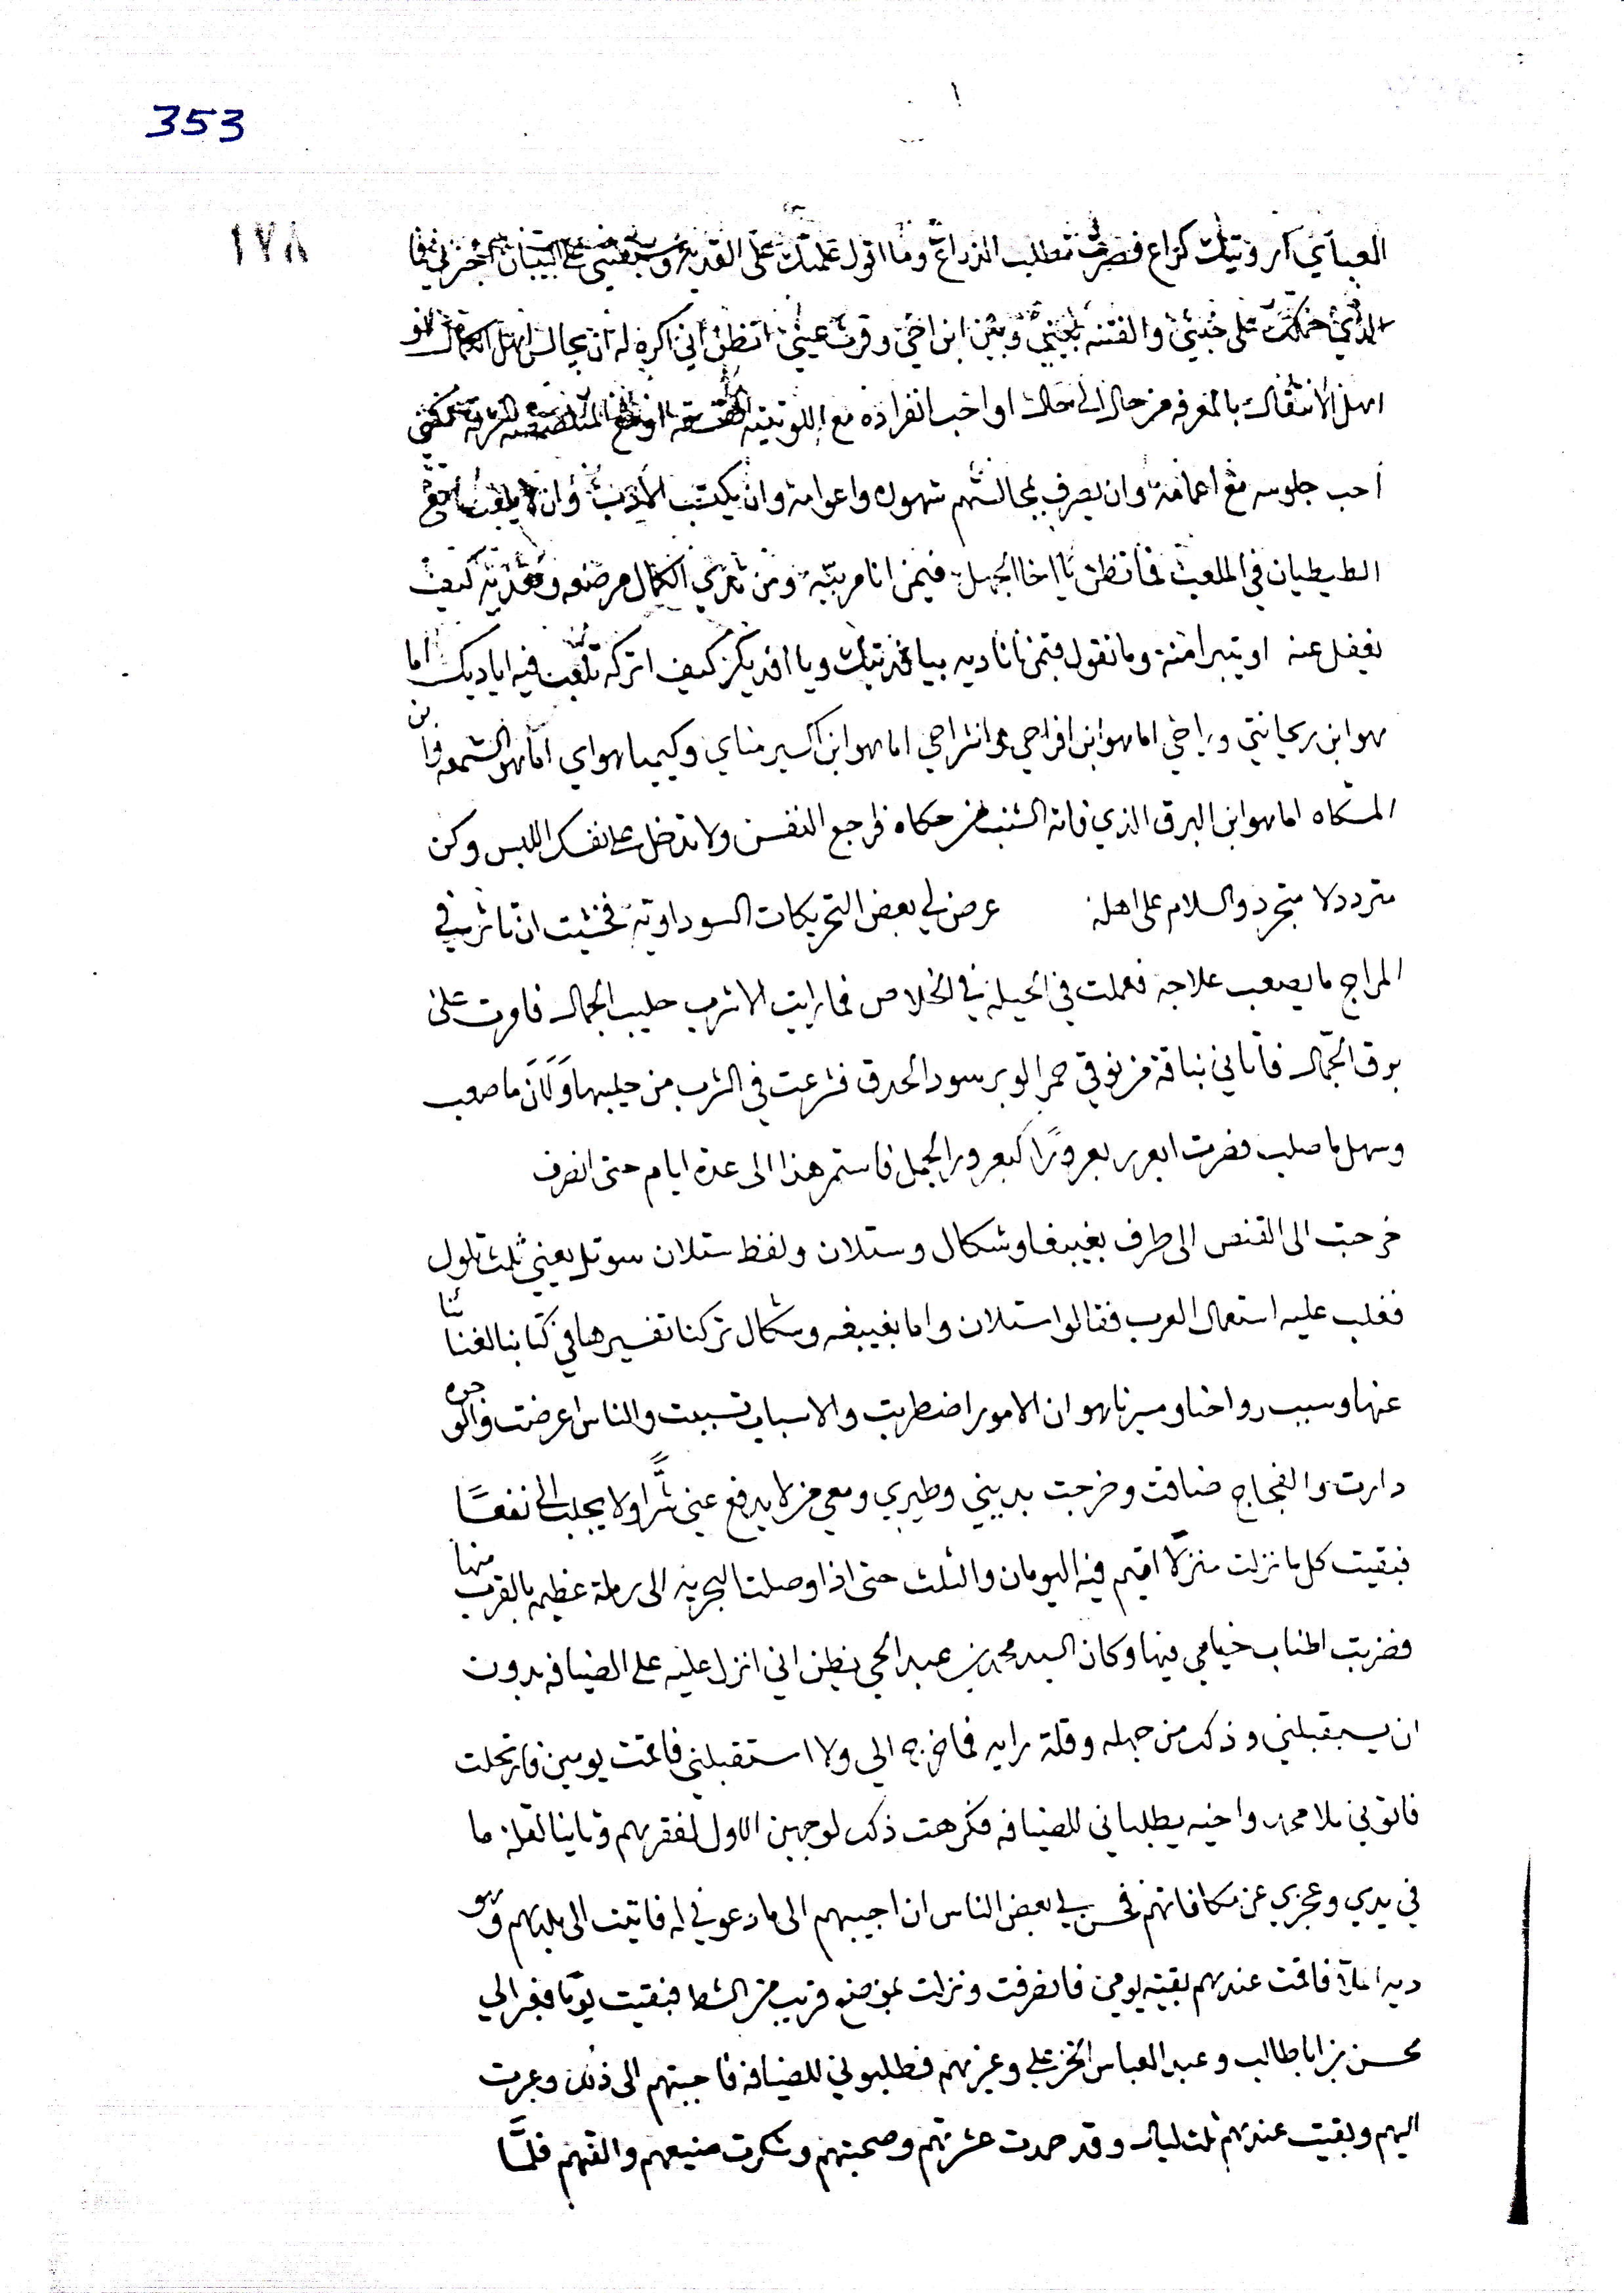 353
١٧٨
العباي آرويتك كراع فصرت تطلب الذراع وما اقول علمتك على القدير
الذي حملك على خبثي والفتنه بيني وبين ابن اخي وقرت عيني اتظن اني اكره له ان يجالس اهل الكمال
اهل الانتقال بالمعرفه من حال الى حال او احب انفراده مع
أحب جلوسه مع أعمامه وان يصرف بمجالستهم شهوره واعوامه وان يكتسب الأدب وان لا يلعب مع
الطيطيان في الملعب فما تظن يا اخا الجهل فيمن انا مربيه ومن ثدي الكمال مرضعه ومغذيه كيف
نغفل عنه او يتبرا منه وما تقول فيمن اناديه بيا فديتك ويا افديكم كيف اتركه تلعب فيه اياديك اما
هو ابن ريحانتي وراحي اما هو ابن افراحي وانشراحي اما هو ابن اكسير مناي وكيميا هواي اما هو الشمعه ابن
المشكاه اما هو ابن البرق الذي فاته الشنب من حكاه فراجع النفس ولا تدخل على نفسك اللبس وكن
متردد لا متجرد والسلام على اهله عرض لي بعض التحريكات السوداويه فخشيت ان تاثر في
المزاج ما يصعب علاجه فعملت في الحيله في الخلاص فما رايت الا شرب حليب الجمال فامرت على
بوق الجمال فاتاني بناقة من نوقي حمر الوبر سود الحدق فشرعت في الشرب من حليبها ولان ما صعب
وسهل ما صلب فصرت ابعرر بعرورًا كبعرور الجمل فاستمر هذا الى عدة ايام حتى انصرف
خرجت الى القنص الى طرف بغيبغا وشكال وستلان ولفظ ستلان سوتل يعني ثلث تلول
فغلب عليه استعمال العرب فقالوا ستلان واما بغيبغه وشكال تركنا تفسيرها في كتابنا لغنائنا
عنها وسبب رواحنا ومسيرنا هو ان الامور اضطربت والاسباب تسببت والناس اعرضت والوجوه
دارت والفجاج ضاقت وخرجت بديني وطيري ومعي من لا يدفع عني شرًّا ولا يجلب الي نفعًا
فبقيت كل ما نزلت منزلًا اقيم فيه اليومان والثلث حتى اذا وصلت البجريه الى رملة عظيمه بالقرب منها
فضربت اطناب خيامي فيها وكان السيد محمد بن عبد الحي يظن اني انزل عليه على الضيافه بدون
ان يستقبلني وذلك من جهله وقلة رايه فما خرج الي ولا استقبلني فاقمت يومين فارتحلت
فاتوني ملا محمد واخيه يطلباني للضيافه فكرهت ذلك لوجهين الاول لفقرهم وثانيا لقلة ما
في يدي وعجزي عن مكافاتهم فحسن لي بعض الناس ان اجيبهم الى ما دعوني له فاتيت الى بلدهم وهو
ديه املا فاقمت عندهم بقيه يومي فانصرفت ونزلت بموضع قريب من الشط فبقيت يومًا فعبر الي
محسن بن ابا طالب وعبد العباس الخزعلي وغيرهم فطلبوني للضيافه فاجبتهم الى ذلك وعبرت
اليهم وبقيت عندهم ثلث ليال وقد حمدت عشرتهم وصحبتهم وشكرت صنيعهم والفتهم فلمَّا